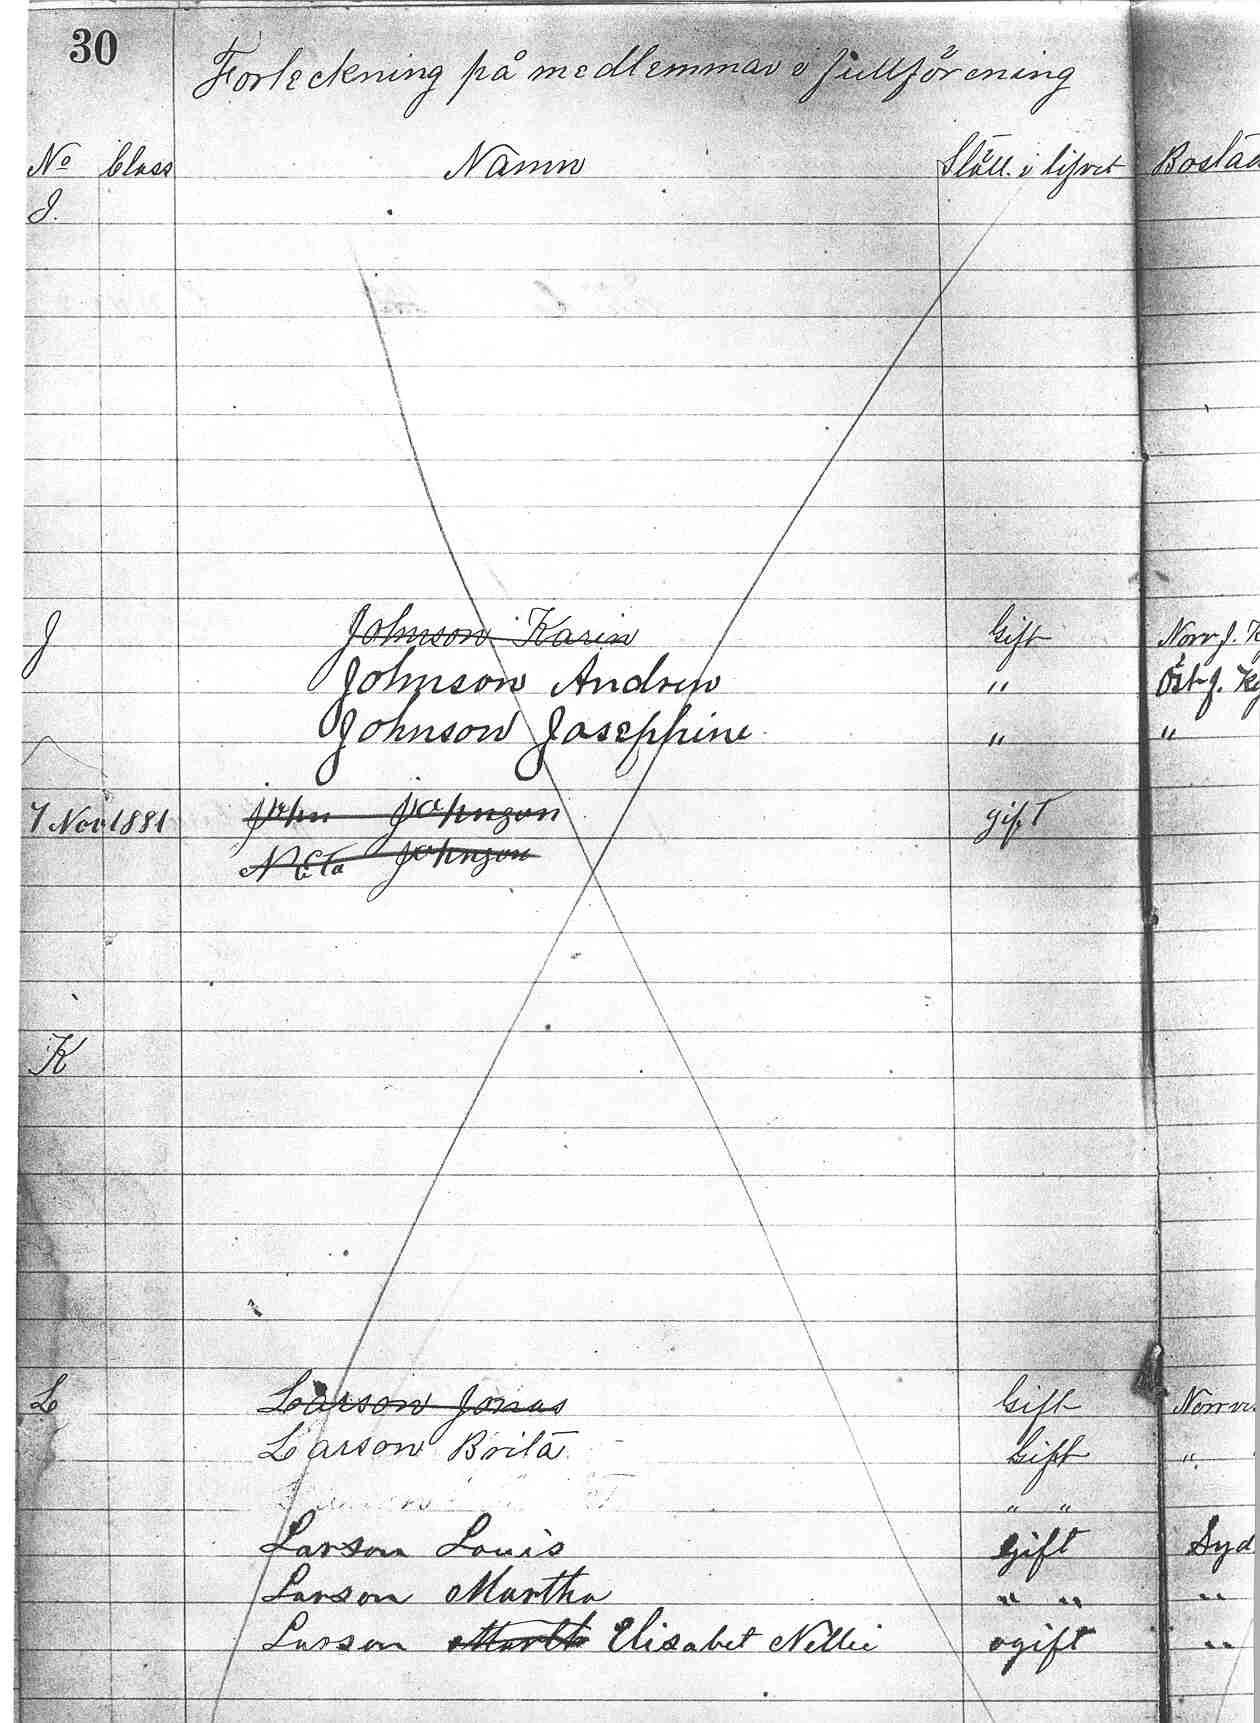 30
Forteckning på medlemmar i full förening
No Class Namn Ställ. i lifvet Bostä
J.
J Johnson Karin Gift Norr J.
Johnson Andrew " Öst J.
Johnson Josephine " "
7 Nov 1881 john johnzon gift
Neta johnzon
K
L Larson Jonas Gift Norr
Larson Brita Gift "
" "
Larson Louis gift Syd
Larson Martha " " "
Larson Marth Elisabet Nellie ogift "